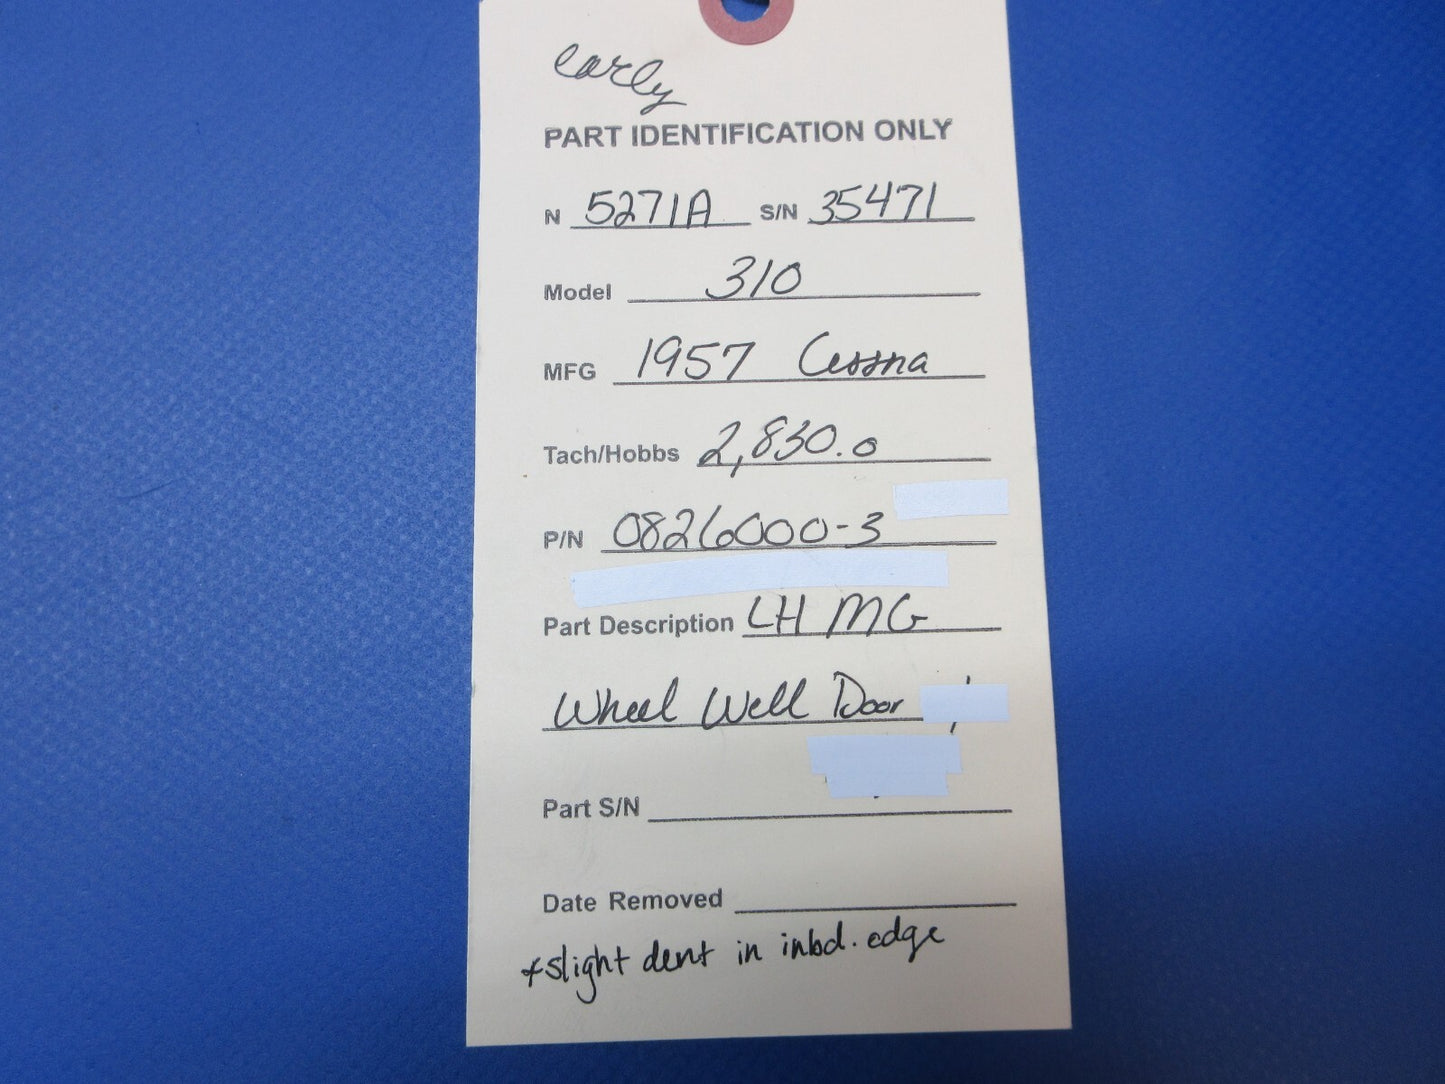 early
PART IDENTIFICATION ONLY
N 5271A S/N 35471
Model 310
MFG 1957 Cessna
Tach/Hobbs 2,830.0
P/N 0826000-3
Part Description LH MG
Wheel Well Door
Part S/N
Date Removed
*slight dent in inbd. edge